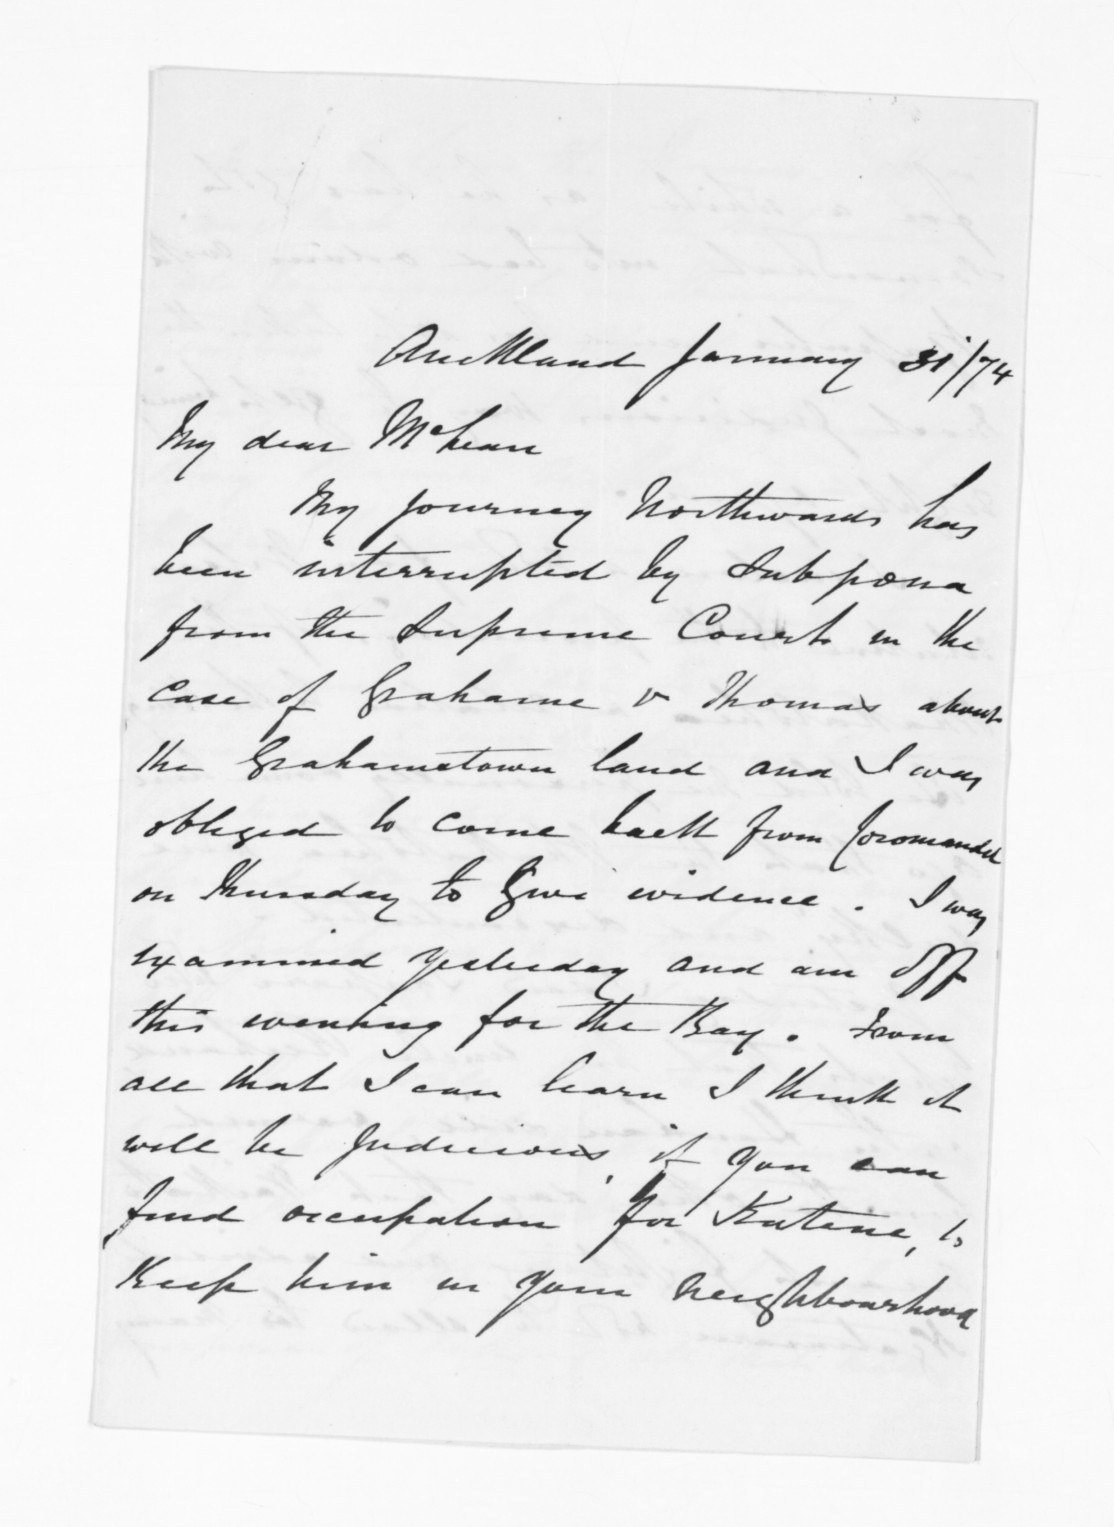 Auckland January 31/74
My dear McLean
My journey Northwards has
been interrupted by Subpœna
from the Supreme Court in the
case of Grahame v Thomas about
the Grahamstown land and I was
obliged to come back from Coromandel
on Thursday to give evidence. I was
examined yesterday and am off
this evening for the Bay. From
all that I can learn I think it
will be judicious, if you can
find occupation for Katene, to
keep him in your neighbourhood